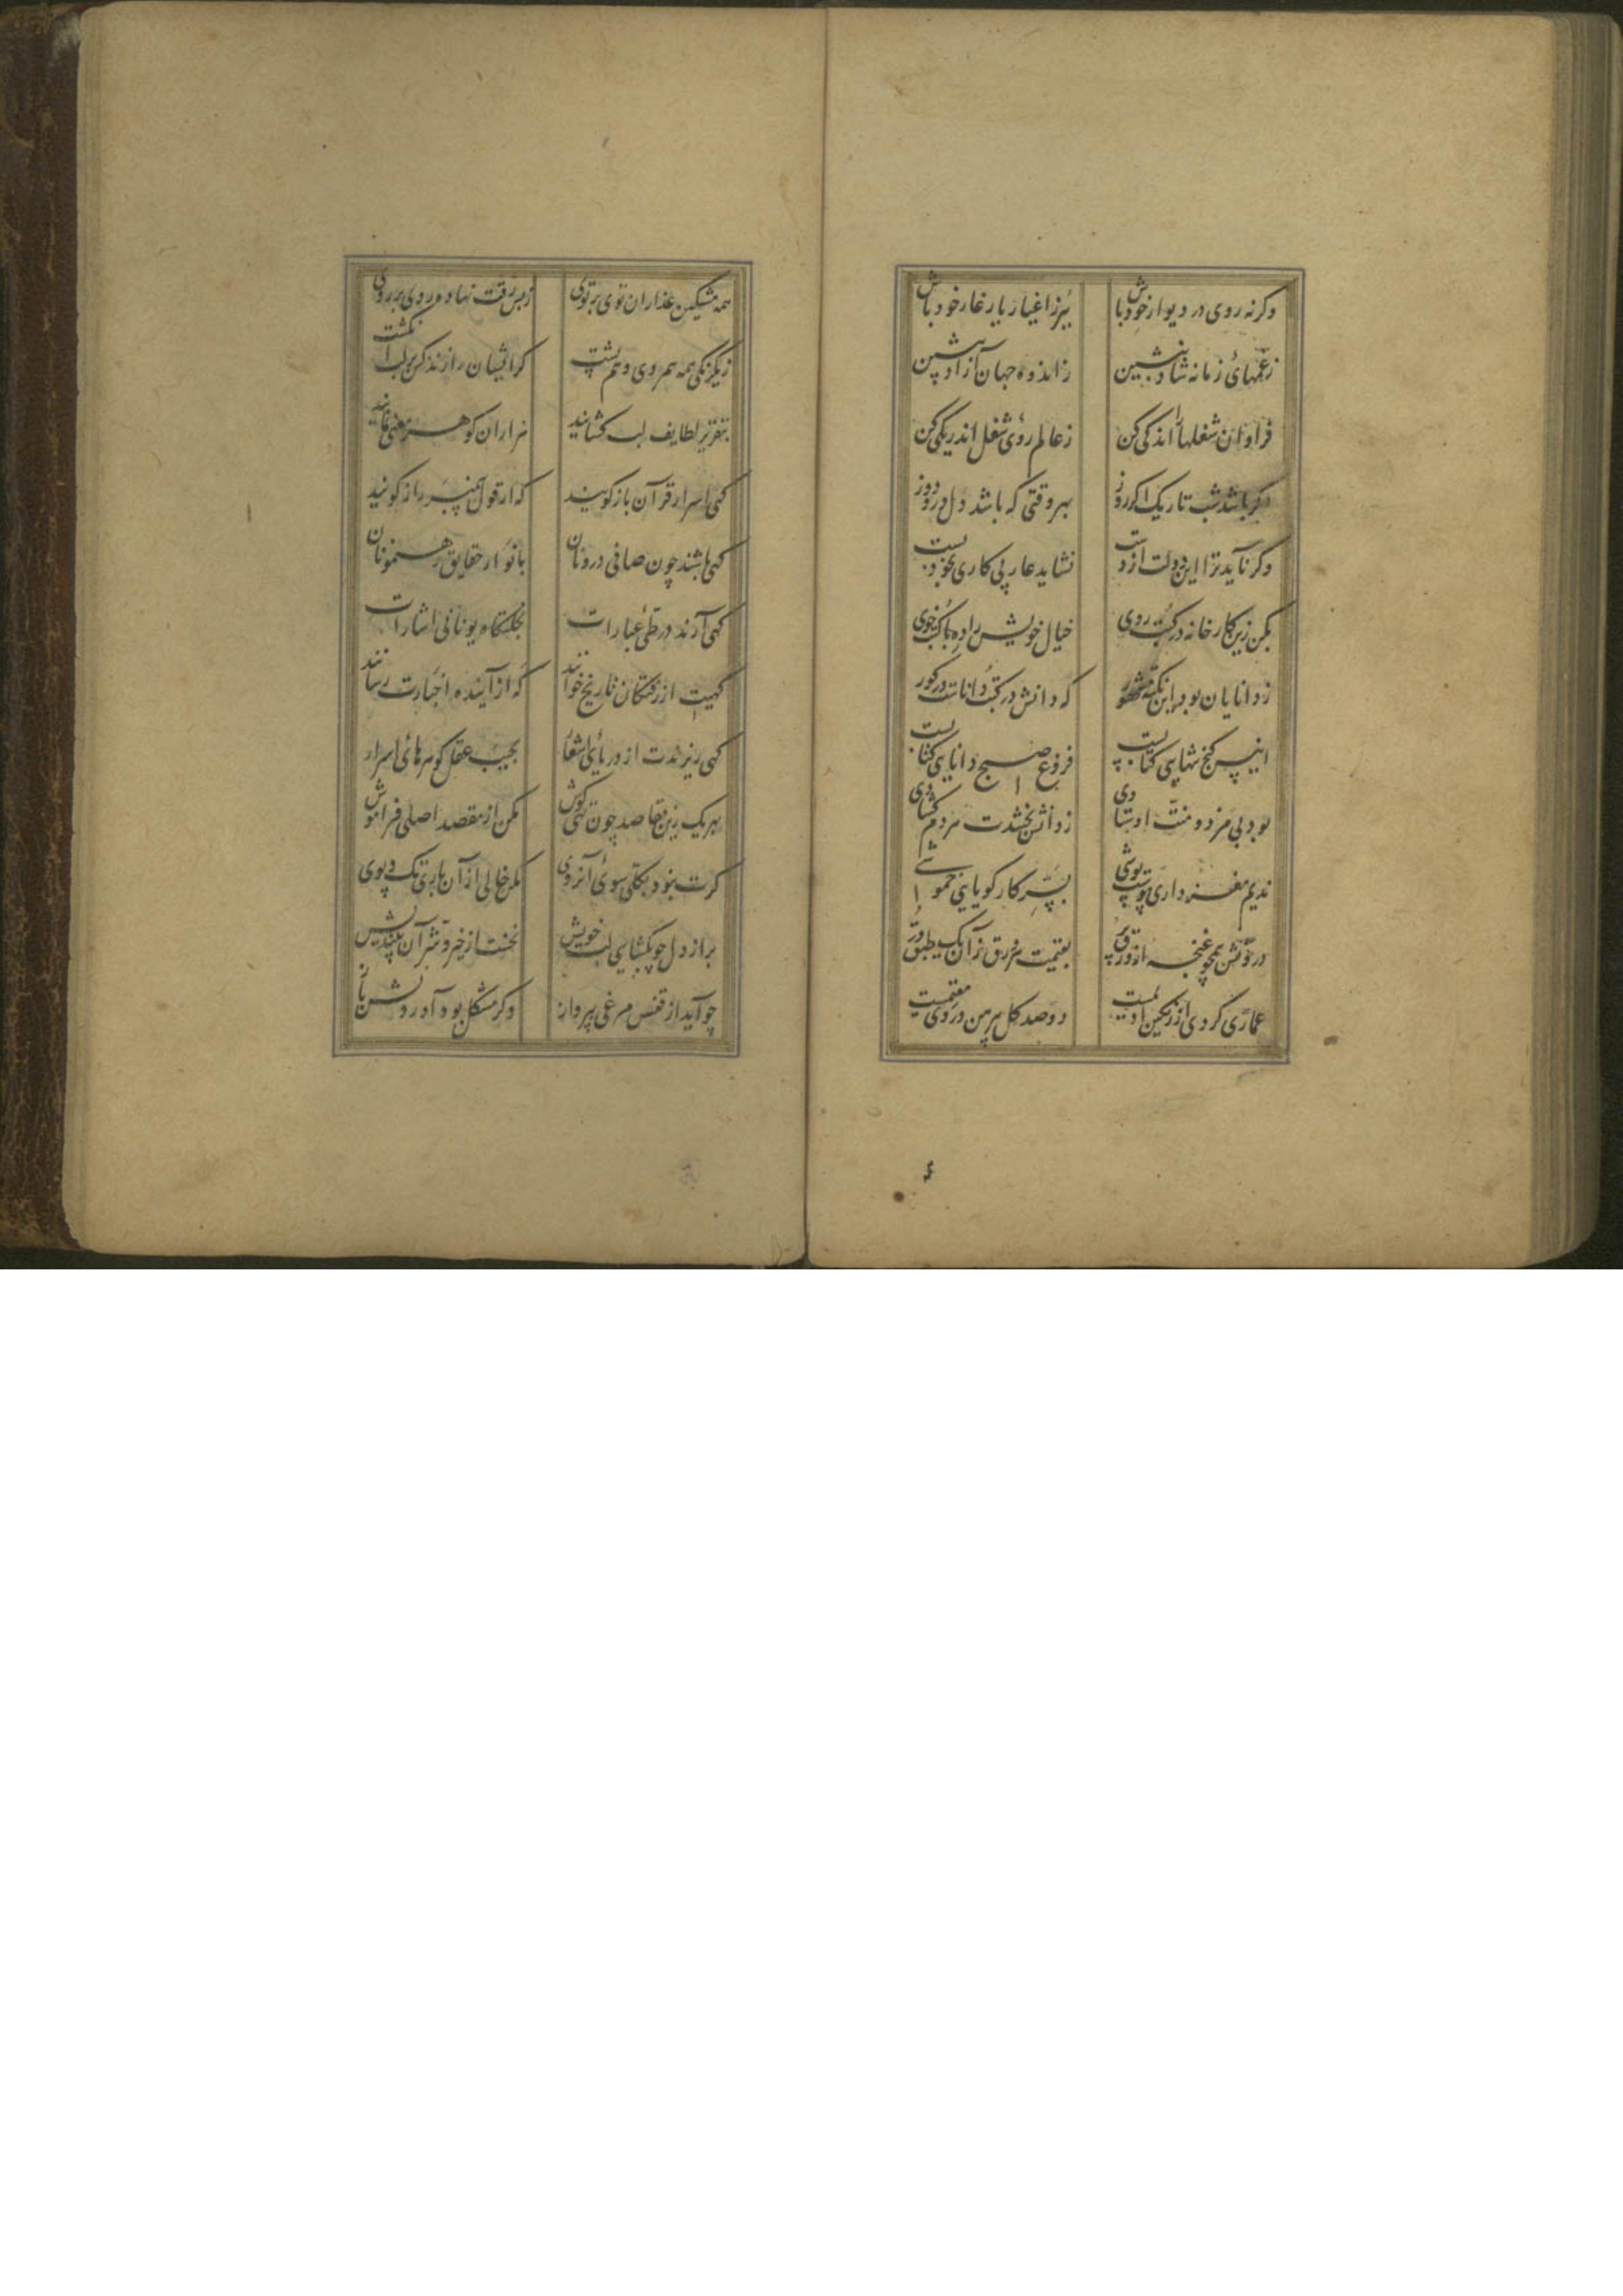 وکرنه روی در دیوار خود باش ببر ز اغیار یار غار خود باش
ز غمهای زمانه شاد بنشین ز اندوه جهان آزاد بنشین
فراوان شغلها را اندکی کن ز عالم روی شغل اندر یکی کن
اکر باشد شب تاریک اکر روز بهر وقتی که باشد دل درو دوز
وکر ناید ترا این دولت از دست نشاید عار بی کاری بخود بست
بکن زین کارخانه در کتب روی خیال خویش را ده با کتب خوی
ز دانایان بود این نکته مشهور که دانش در کتب داناست در کور
انیس کنج تنهایی کتابست فروغ صبح دانایی کتابست
بود بی مزد و منت اوستادی ز دانش بخشدت هر دم کشادی
ندیم مغز داری پوست پوشی بسر کار کویایی خموشی
درونش همچو غنچه از ورق پر بقیمت هر ورق زان یک طبق در
عماری کردی از رنکین ادیمست دو صد کل پیرهن در وی مقیمست
همه مشکین عذاران توی بر توی ز بس رقت نهاده روی بر روی
ز یکرنکی همه هم روی و هم پشت کر ایشان را زند کس بر لب انکشت
بتقریر لطایف لب کشایند هزاران کوهر معنی نمایند
کهی اسرار قرآن باز کویند که از قول پیمبر راز کویند
کهی باشند چون صافی درونان بانوار حقایق رهنمونان
کهی آرند در طی عبارات بحکمتهاء یونانی اشارات
کهیت از رفتکان تاریخ خوانند که از آینده اخبارت رسانند
کهی ریزندت از دریای اشعار بجیب عقل کوهرهای اسرار
بهر یک زین مقاصد چون نهی کوش مکن از مقصد اصلی فراموش
کرت نبود بکلی سوی آن روی مکن خالی از آن باری تک و پوی
براز دل چو بکشایی لب خویش نخست از خیر و شر آن بیندیش
چو آید از قفس مرغی بپرواز وکر مشکل بود آوردنش باز